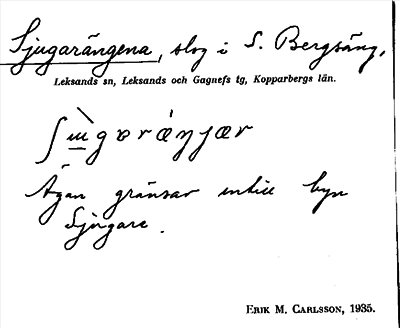 Sjugarängena, slog i S. Bergsäng,
Leksands sn, Leksands och Gagnefs tg, Kopparbergs län.
Ägan gränsar intill byn
Sjugare.
ERIK M. CARLSSON, 1935.